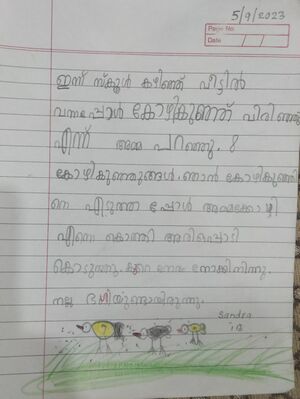 5/9/2023
Page No:
Date
ഇന്ന് സ്കൂൾ കഴിഞ്ഞ് വീട്ടിൽ
വന്നപ്പോൾ കോഴികുഞ്ഞ് വിരിഞ്ഞു
എന്ന് അമ്മ പറഞ്ഞു. 8
കോഴികുഞ്ഞുങ്ങൾ. ഞാൻ കോഴികുഞ്ഞി
നെ എടുത്ത പ്പോൾ അമ്മക്കോഴി
എന്നെ കൊത്തി അരിപ്പൊടി
കൊടുത്തു. കുറെ നേരം നോക്കിനിന്നു.
നല്ല ഭംഗിയുണ്ടായിരുന്നു.
Sandra